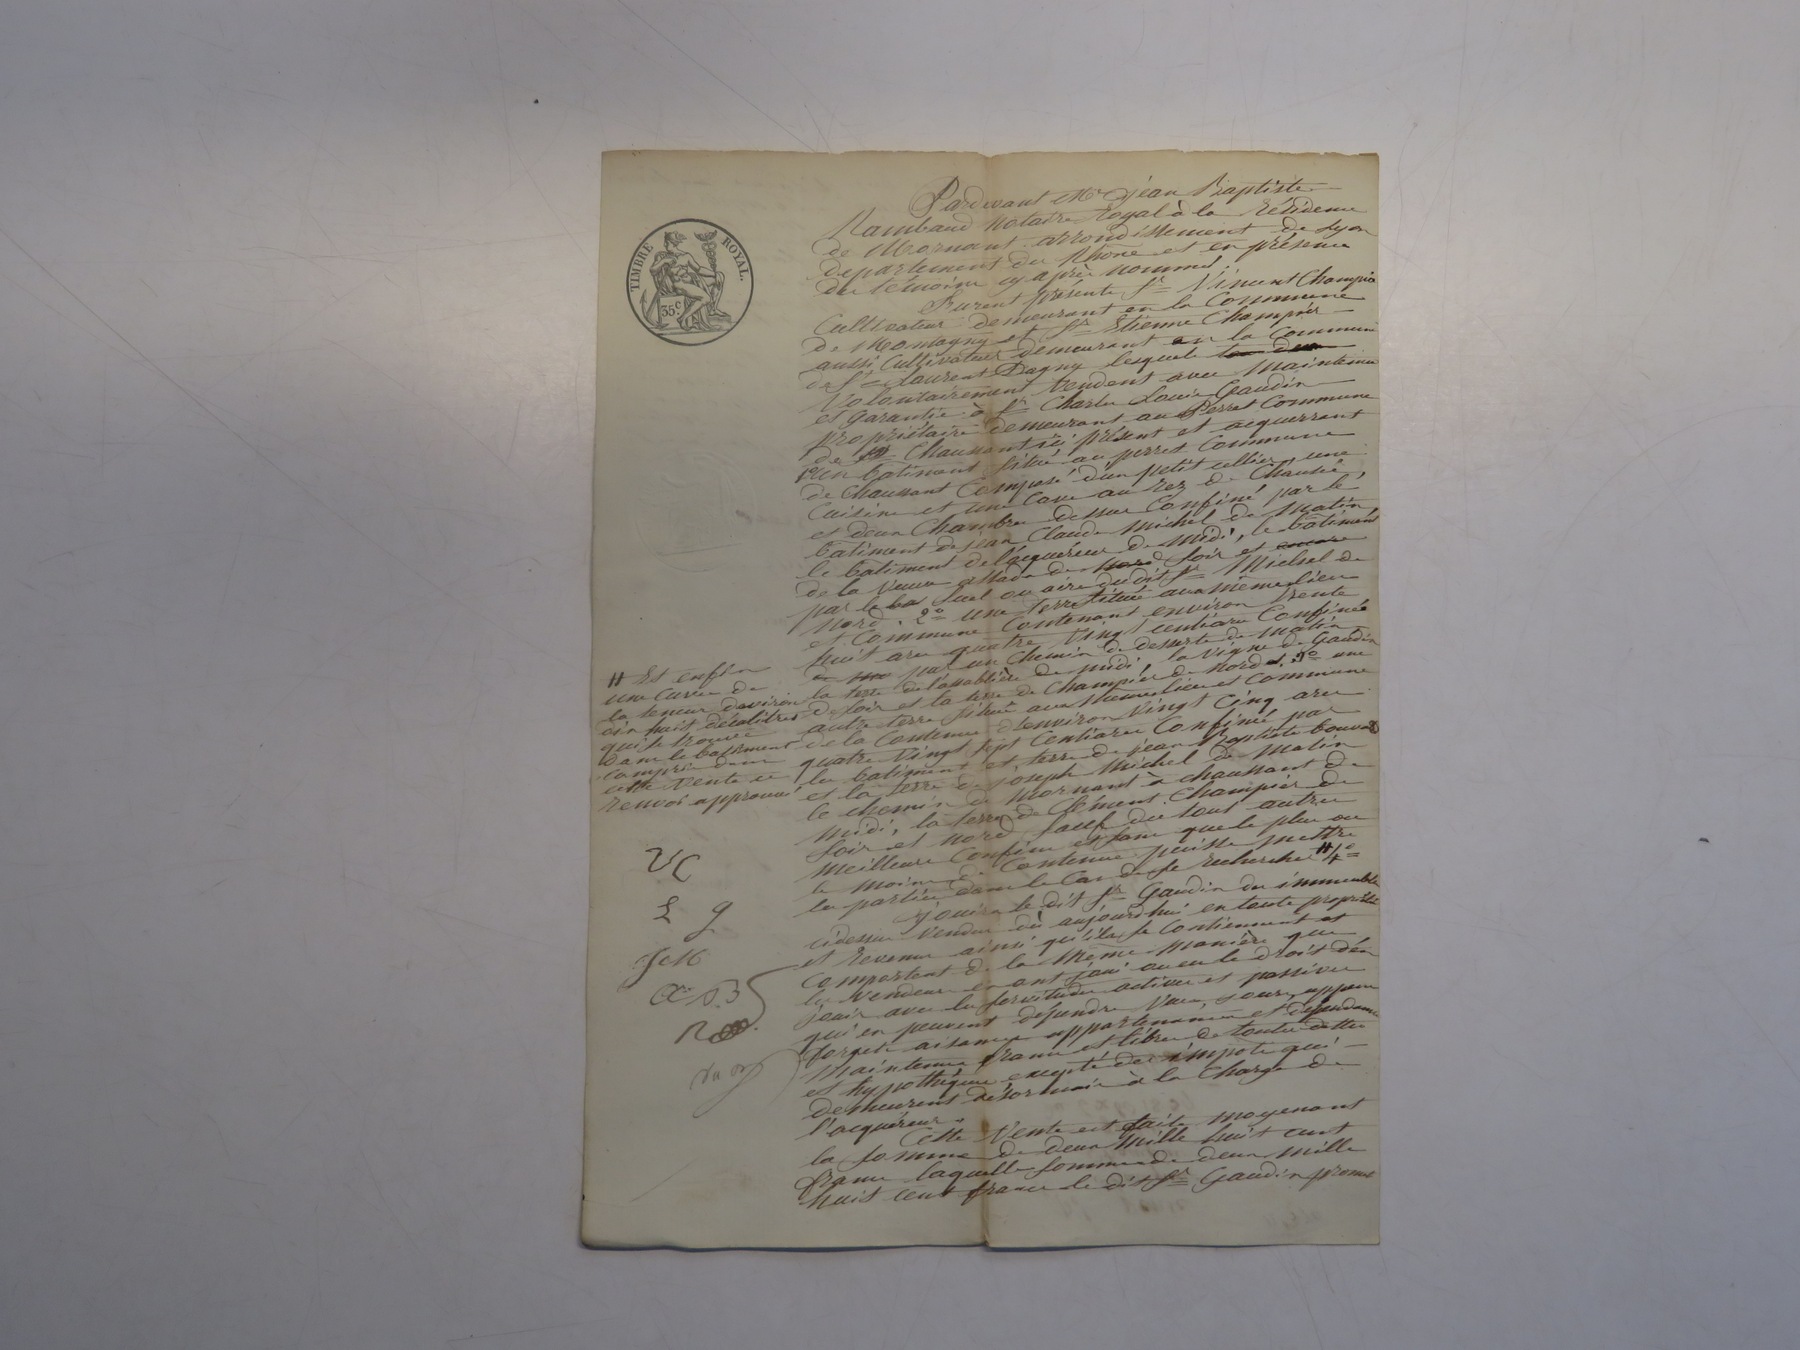 TIMBRE ROYAL.
35c
Pardevant Me Jean Baptiste
Rambaud notaire Royal à la résidence
de Mornant arrondissement de Lyon
departement du Rhône et en présence
des témoins cy après nommés.
Furent présents Sr Vincent Champier
Cultivateur demeurant en la Commune
de Montagny et Sr Etienne Champier
aussi Cultivateur demeurant en la Commune
de St Laurent Dagny lesquels
Volontairement Vendent avec Maintenue
et Garantie à Sr Charles Louis Gaudin
propriétaire demeurant au Perret Commune
de Chaussant ici présent et acquerrant
1o un batiment situé au perret Commune
de Chaussant Composé d'un petit cellier, une
Cuisine et une Cave au rez de Chaussée,
et deux Chambres dessus Confiné par le
batiment de Jean Claude Michel de Matin,
le batiment de l'acquéreur de Midi, le batiment
de la Veuve de soir et
par le suel ou aire dudit Sr Michel de
Nord. 2o une terre située au même lieu
et Commune Contenant environ trente
huit ares quatre Vingt centiares Confinée
par un Chemin de desserte de Matin
la terre de midi, la Vigne de Gaudin
de soir et la terre de Champier de nord. 3o une
autre terre située au même lieu et Commune
de la Contenue d'environ Vingt Cinq ares
quatre Vingt sept Centiares Confinée par
les batiment et terre de Jean Baptiste
et la terre de Joseph Michel de Matin
le chemin de Mornant à chaussant de
midi, la terre de Clément Champier de
soir et nord sauf du tout autres
Meilleurs Confins et sans que le plus ou
le moins de Contenue puisse mettre
les parties dans le Cas de se rechercher # 4o
Jouira le dit Sr Gaudin des immeubles
cidessus Vendus dès aujourdhui en toute propriété
et revenu ainsi qu'ils se Contiennent et
comportent de la Même Manière que
les Vendeurs en ont joui ou eu le droit d'en
jouir avec les servitudes actives et passives
qui en peuvent dépendre Vues, jours,
forgets aisances appartenances et dépendances
Maintenus francs et libres de toutes dettes
et hypothèques excepté des impots qui
demeurent désormais à la Charge de
l'acquéreur.
Cette Vente est faite moyenant
la somme de deux Mille huit cent
francs laquelle somme de deux mille
huit cent francs le dit Sr Gaudin promet
# Et enfin
une Cuvée de
la teneur d'environ
dix huit décalitres
qui se trouve
dans le batiment
compris dans
cette Vente ce
renvoi approuvé
VC